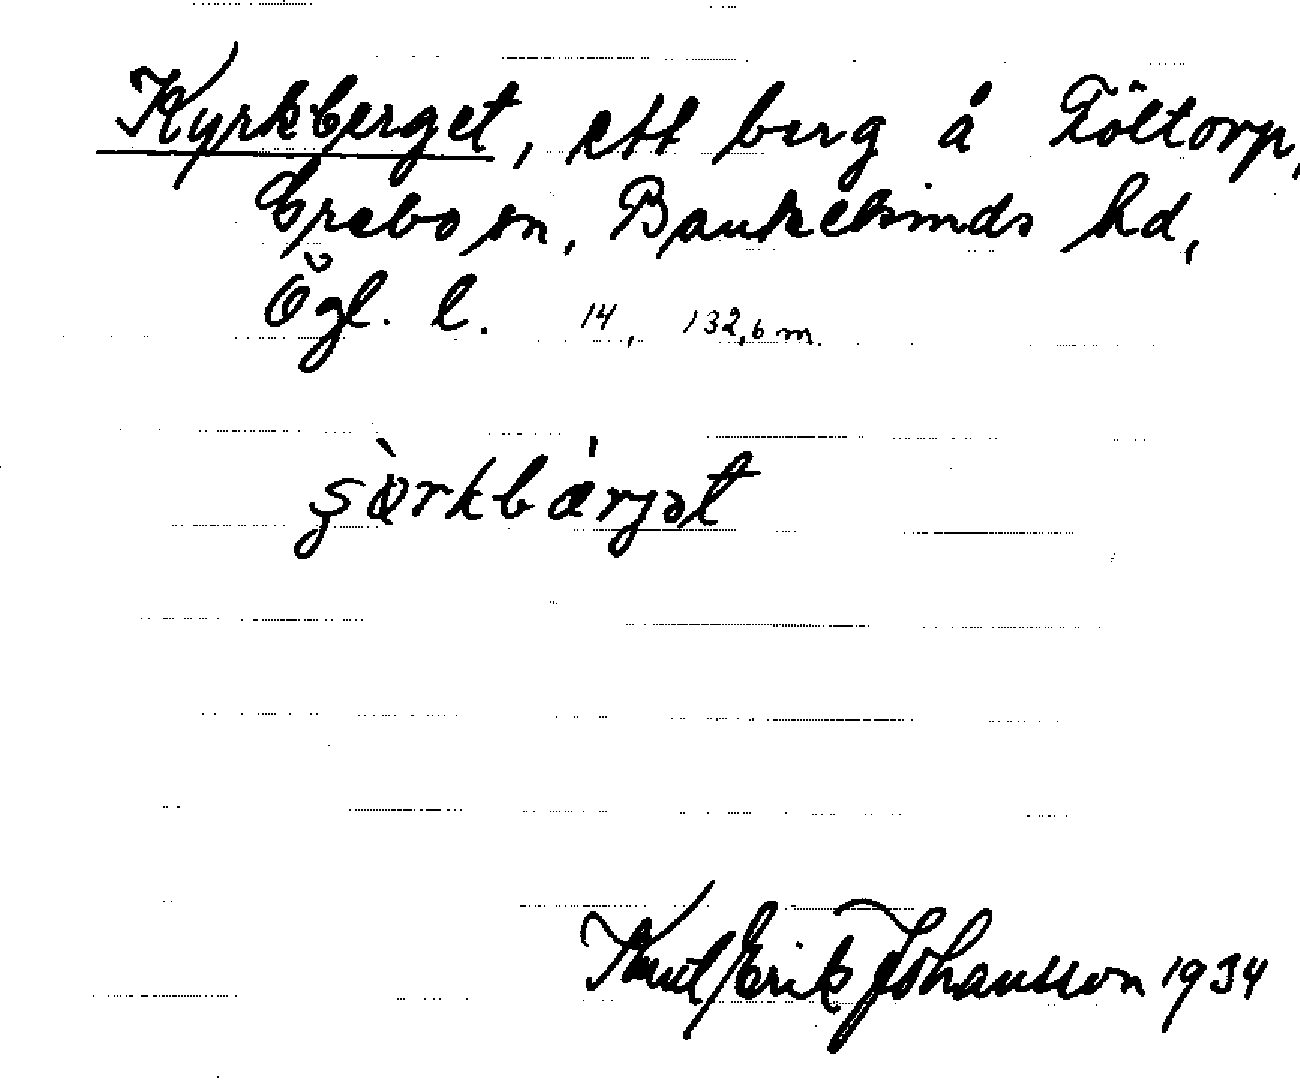 Kyrkberget, ett berg å Föltorp,
Grebo sn, Bankekinds hd,
Ögl. l. 14, 132,6 m.
Knut Erik Johansson 1934